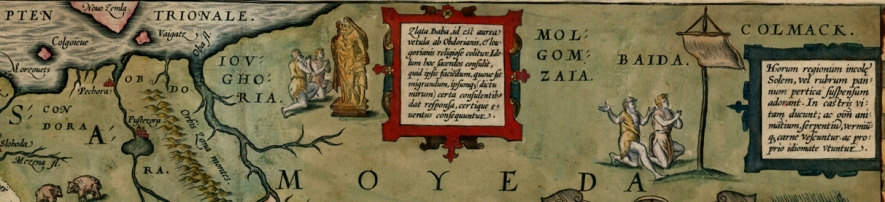 PTEN TRIONALE.
Noua Zemla.
Colgoieue
Vaigatz
Oba fl.
Morzouets
Pechora
OB DO RA.
IOV: GHO: RIA.
CON DORA
S A
Pustezora
Sloboda
Mezena fl.
Orbis Zona montes.
Zlata Baba, id est aurea
vetula ab Obdorianis, & Iou-
gorianis religiose colitur. Ido
lum hoc sacerdos consulit,
quid ipsis faciēdum, quoue sit
migrandum, ipsumq; (dictu
mirum) certa consulentib9
dat responsa, certique e
uentus consequuntur.
MOL:
GOM:
ZAIA.
BAIDA.
COLMACK.
Horum regionum incolę
Solem, vel rubrum pan-
num pertica suspensum
adorant. In castris vi-
tam ducunt; ac oim ani-
mātium, serpentiū, vermiū
q; carne vescuntur. ac pro-
prio idiomate vtuntur.
MOYEDA